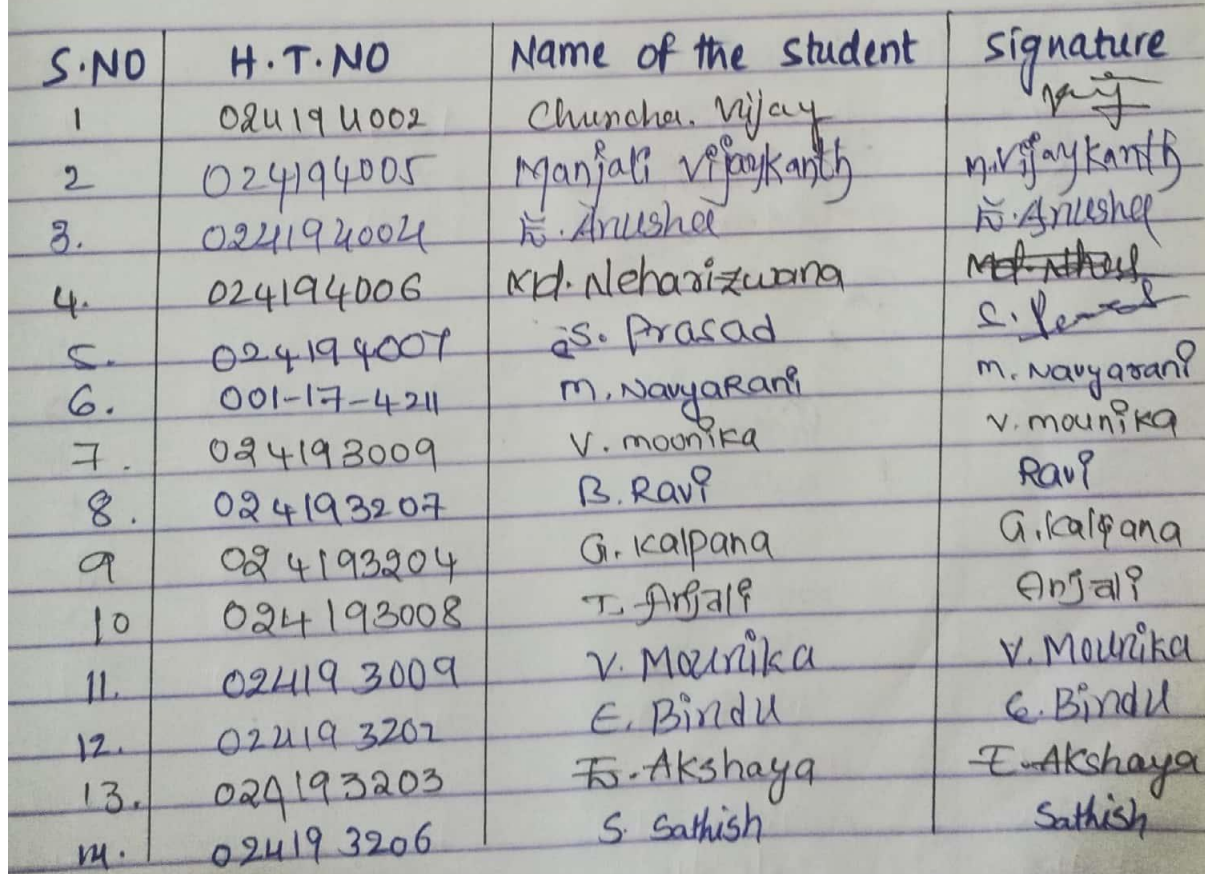 S.NO H.T.NO Name of the student signature
1 024194002 Chuncha. Vijay
2 024194005 Manjali Vijaykanth M.Vijaykanth
3. 024194004 E. Anusha E. Anusha
4. 024194006 Md. Neharizwana
5. 024194007 S. Prasad S.
6. 001-17-4211 M. NavyaRani M. Navyarani
7. 024193009 V. moonika V. mounika
8. 024193207 B. Ravi Ravi
9 024193204 G. Kalpana G. Kalpana
10 024193008 T. Anjali Anjali
11. 024193009 V. Mounika V. Mounika
12. 024193202 E. Bindu E. Bindu
13. 024193203 E. Akshaya E. Akshaya
14. 024193206 S. Sathish Sathish